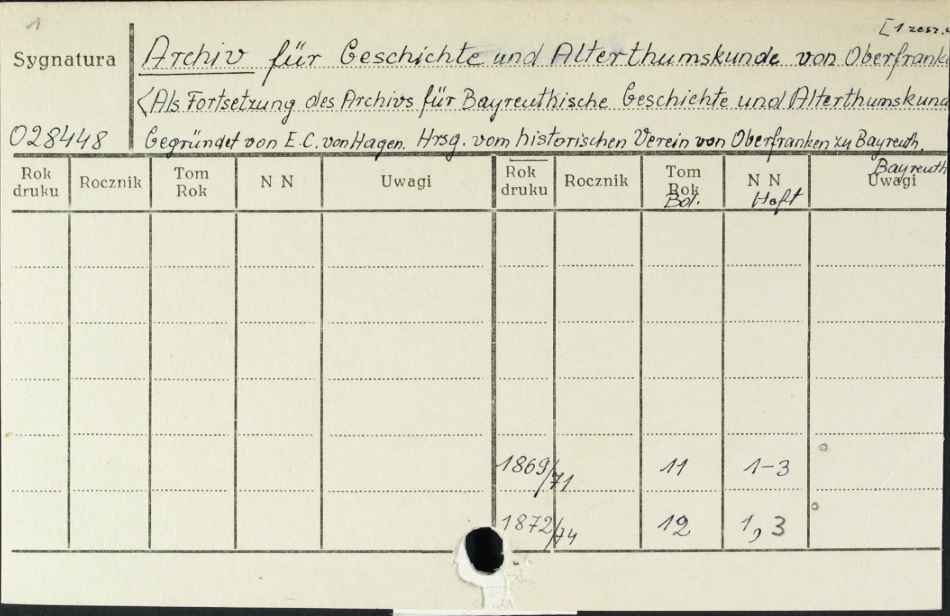 1
[1 zesz.
Sygnatura
Archiv für Geschichte und Alterthumskunde von Oberfrank
<Als Fortsetzung des Archivs für Bayreuthische Geschichte und Alterthumskund
028448
Gegründet von E.C. von Hagen. Hrsg. vom historischen Verein von Oberfranken zu Bayreuth.
Bayreuth
Rok druku Rocznik Tom Rok N N Uwagi Rok druku Rocznik Tom Rok Bd. N N Heft Uwagi
1869/71 11 1-3
1872/74 12 1,3